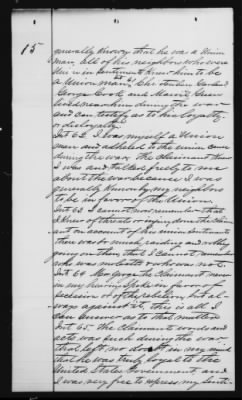 15
generally known that he was a Union
man, all of his neighbors who were
Union in sentiment knew him to be
a Union man.
George Cook and
lived near him during the war
and can testify as to his loyalty
or disloyalty.
Int 62. I was myself a Union
man and adhered to the Union cause
during the war. The claimant knew
I was and talked freely to me
about the war because I was
generally known by my neighbors
to be in favor of the Union.
Int 63 I cannot now remember that
I knew of threats or injury done the claim-
ant on account of his union sentiments
there was so much raiding and robbing
going on then that I cannot remember
who was molested or who was not.
Int 64 The claimant never
in my hearing spoke in favor of
secession or of the rebellion, but al-
ways against it, this is all I
can answer as to that matter
Int 65. The claimants words and
acts was such during the war
that left no doubt in my mind
that he was truly loyal to the
United States Government, and
I was very free to express my senti-